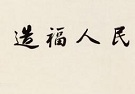 造福人民